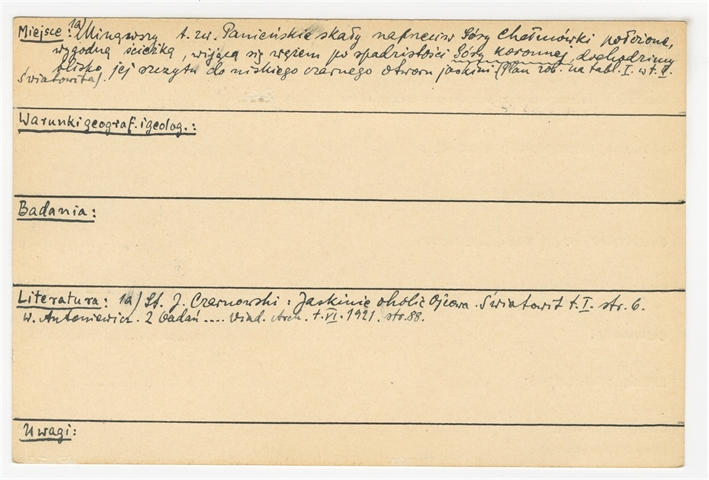 Miejsce: 1a) Minąwszy t. zw. Panieńskie skały naprzeciw Góry Chełmówki położone,
wygodną ścieżką, wijącą się wężem po spadzistości Góry koronnej, dochodzimy
blisko jej szczytu do niskiego czarnego otworu jaskini. (Plan rob. na tabl. I. w t. I.
Światowita).
Warunki geograf. i geolog.:
Badania:
Literatura: 1a) St. J. Czarnowski: Jaskinie okolic Ojcowa. Światowit t. I. str. 6.
W. Antoniewicz. Z badań .... Wiad. Arch. t. VI. 1921. str. 88.
Uwagi: